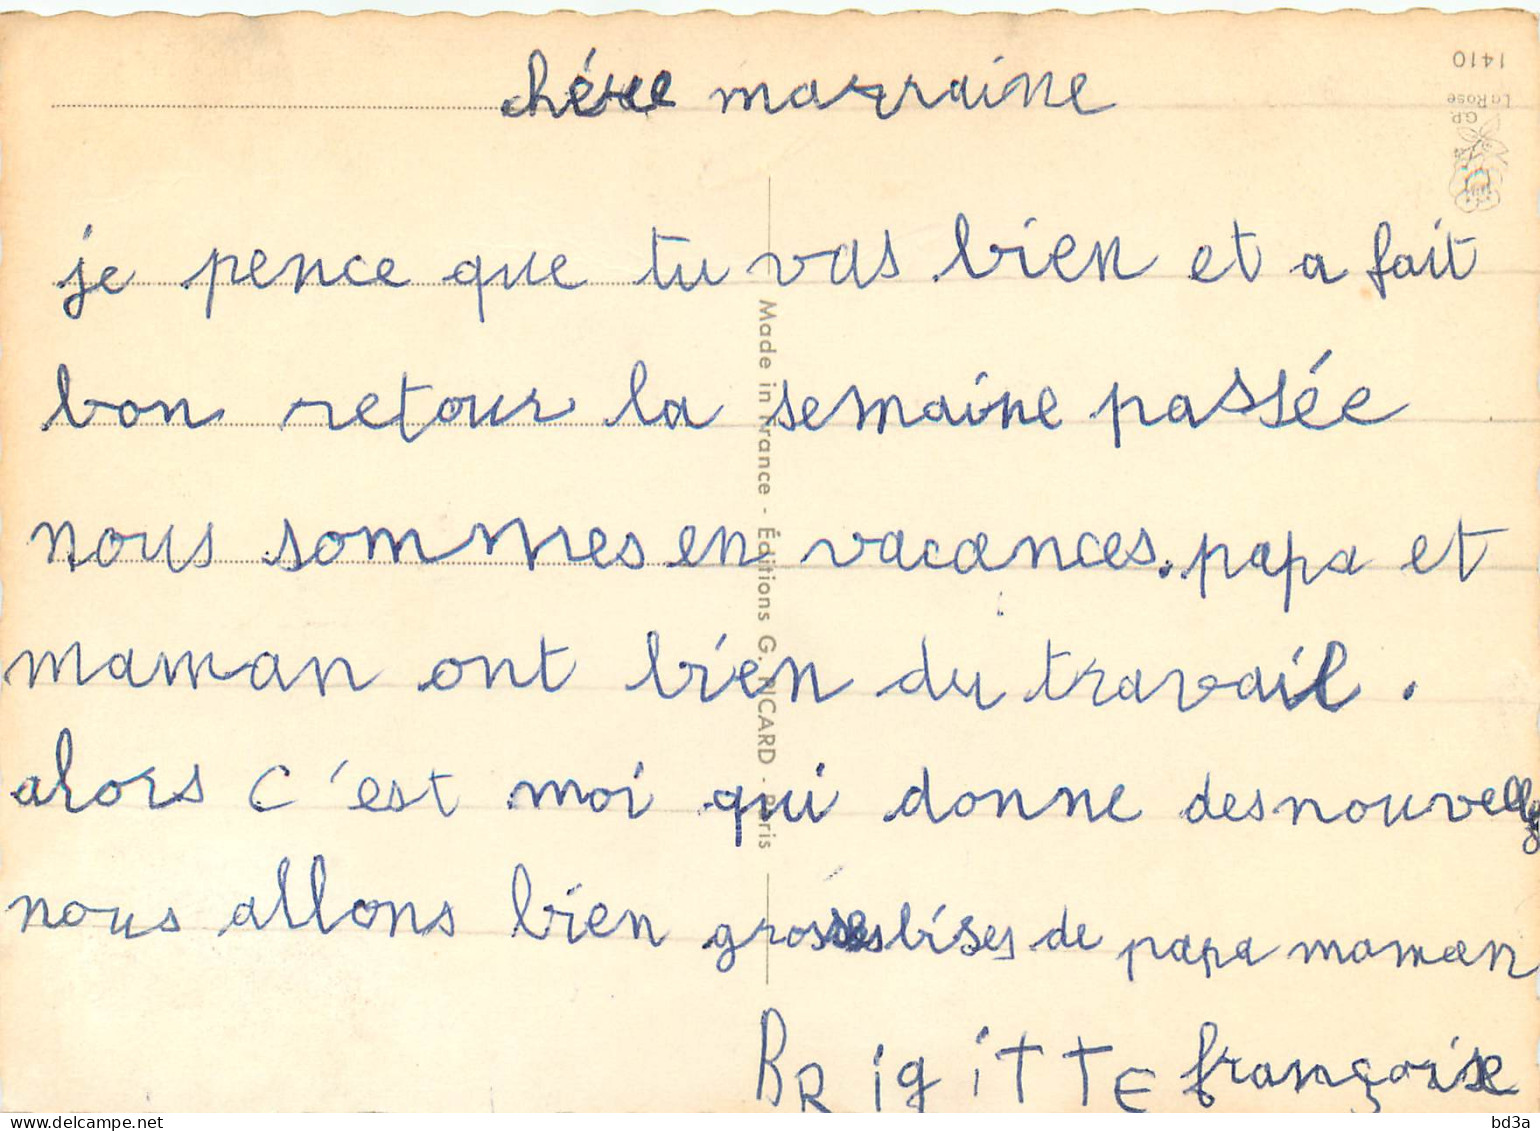 chére marraine
je pence que tu vas bien et a fait
bon retour la semaine passée
nous sommes en vacances. papa et
maman ont bien du travail.
alors c'est moi qui donne des nouvelles
nous allons bien grosses bises de papa maman
BRigiTTE françoise
1410
La Rose
G.P.
Made in France - Éditions G. PICARD - Paris
bd3a